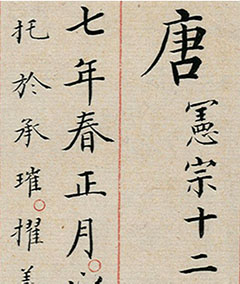 唐憲宗十二
七年春正月
托於承璀擢